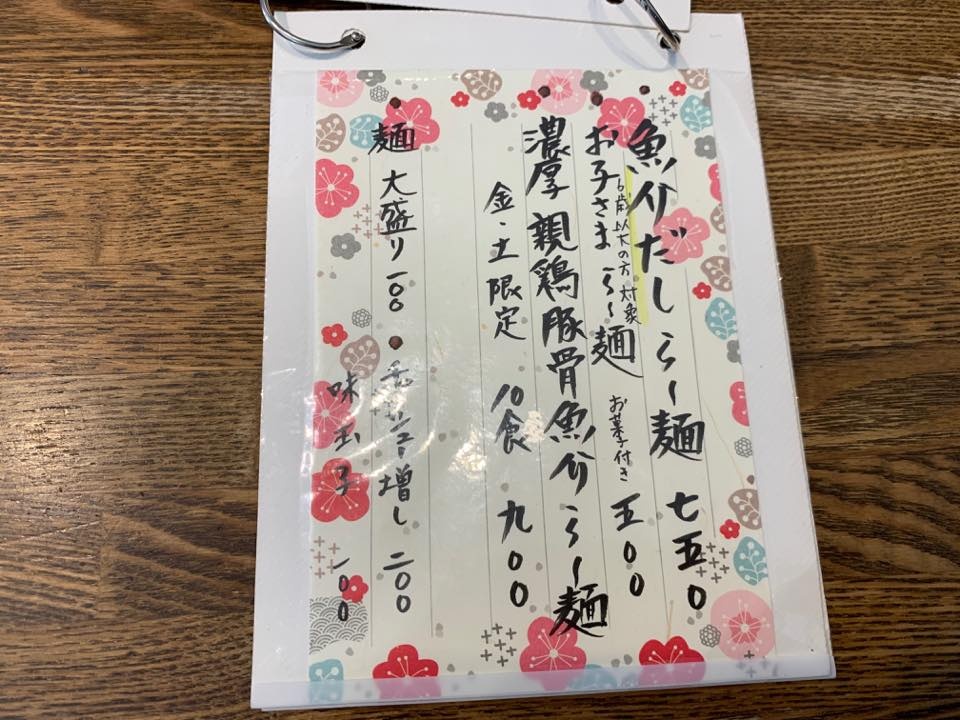 魚介だしらー麺 七五〇
お子さまらー麺 お菓子付き 五〇〇
6歳以下の方 対象
濃厚親鶏豚骨魚介らー麺
金・土限定 10食 九〇〇
麺大盛り 一〇〇
チャーシュー増し 二〇〇
味玉子 一〇〇